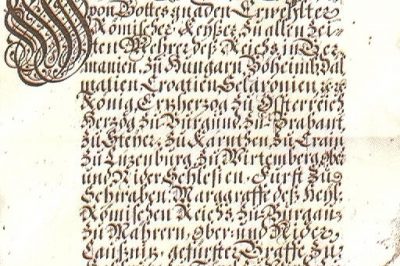 von Gottes gnaden Erwehlter
Römischer Keyser zu allen zei-
ten Mehrer des Reichs in Ger
manien, zu Hungarn Böheimb Dal
matien Croatien Sclavonien
König Ertzherzog zu Österreich
Herzog zu Burgund zu Brabant
zu Steyer, zu Kärnten zu Crain
zu Luzenburg zu Wirtemberg Ober
und Nider Schlesien Fürst zu
Schwaben, Marggraffe des Heyl.
Römischen Reichs zu Burgau,
zu Mährern, Ober und Nider
Laußnitz, gefürster Graffe zu